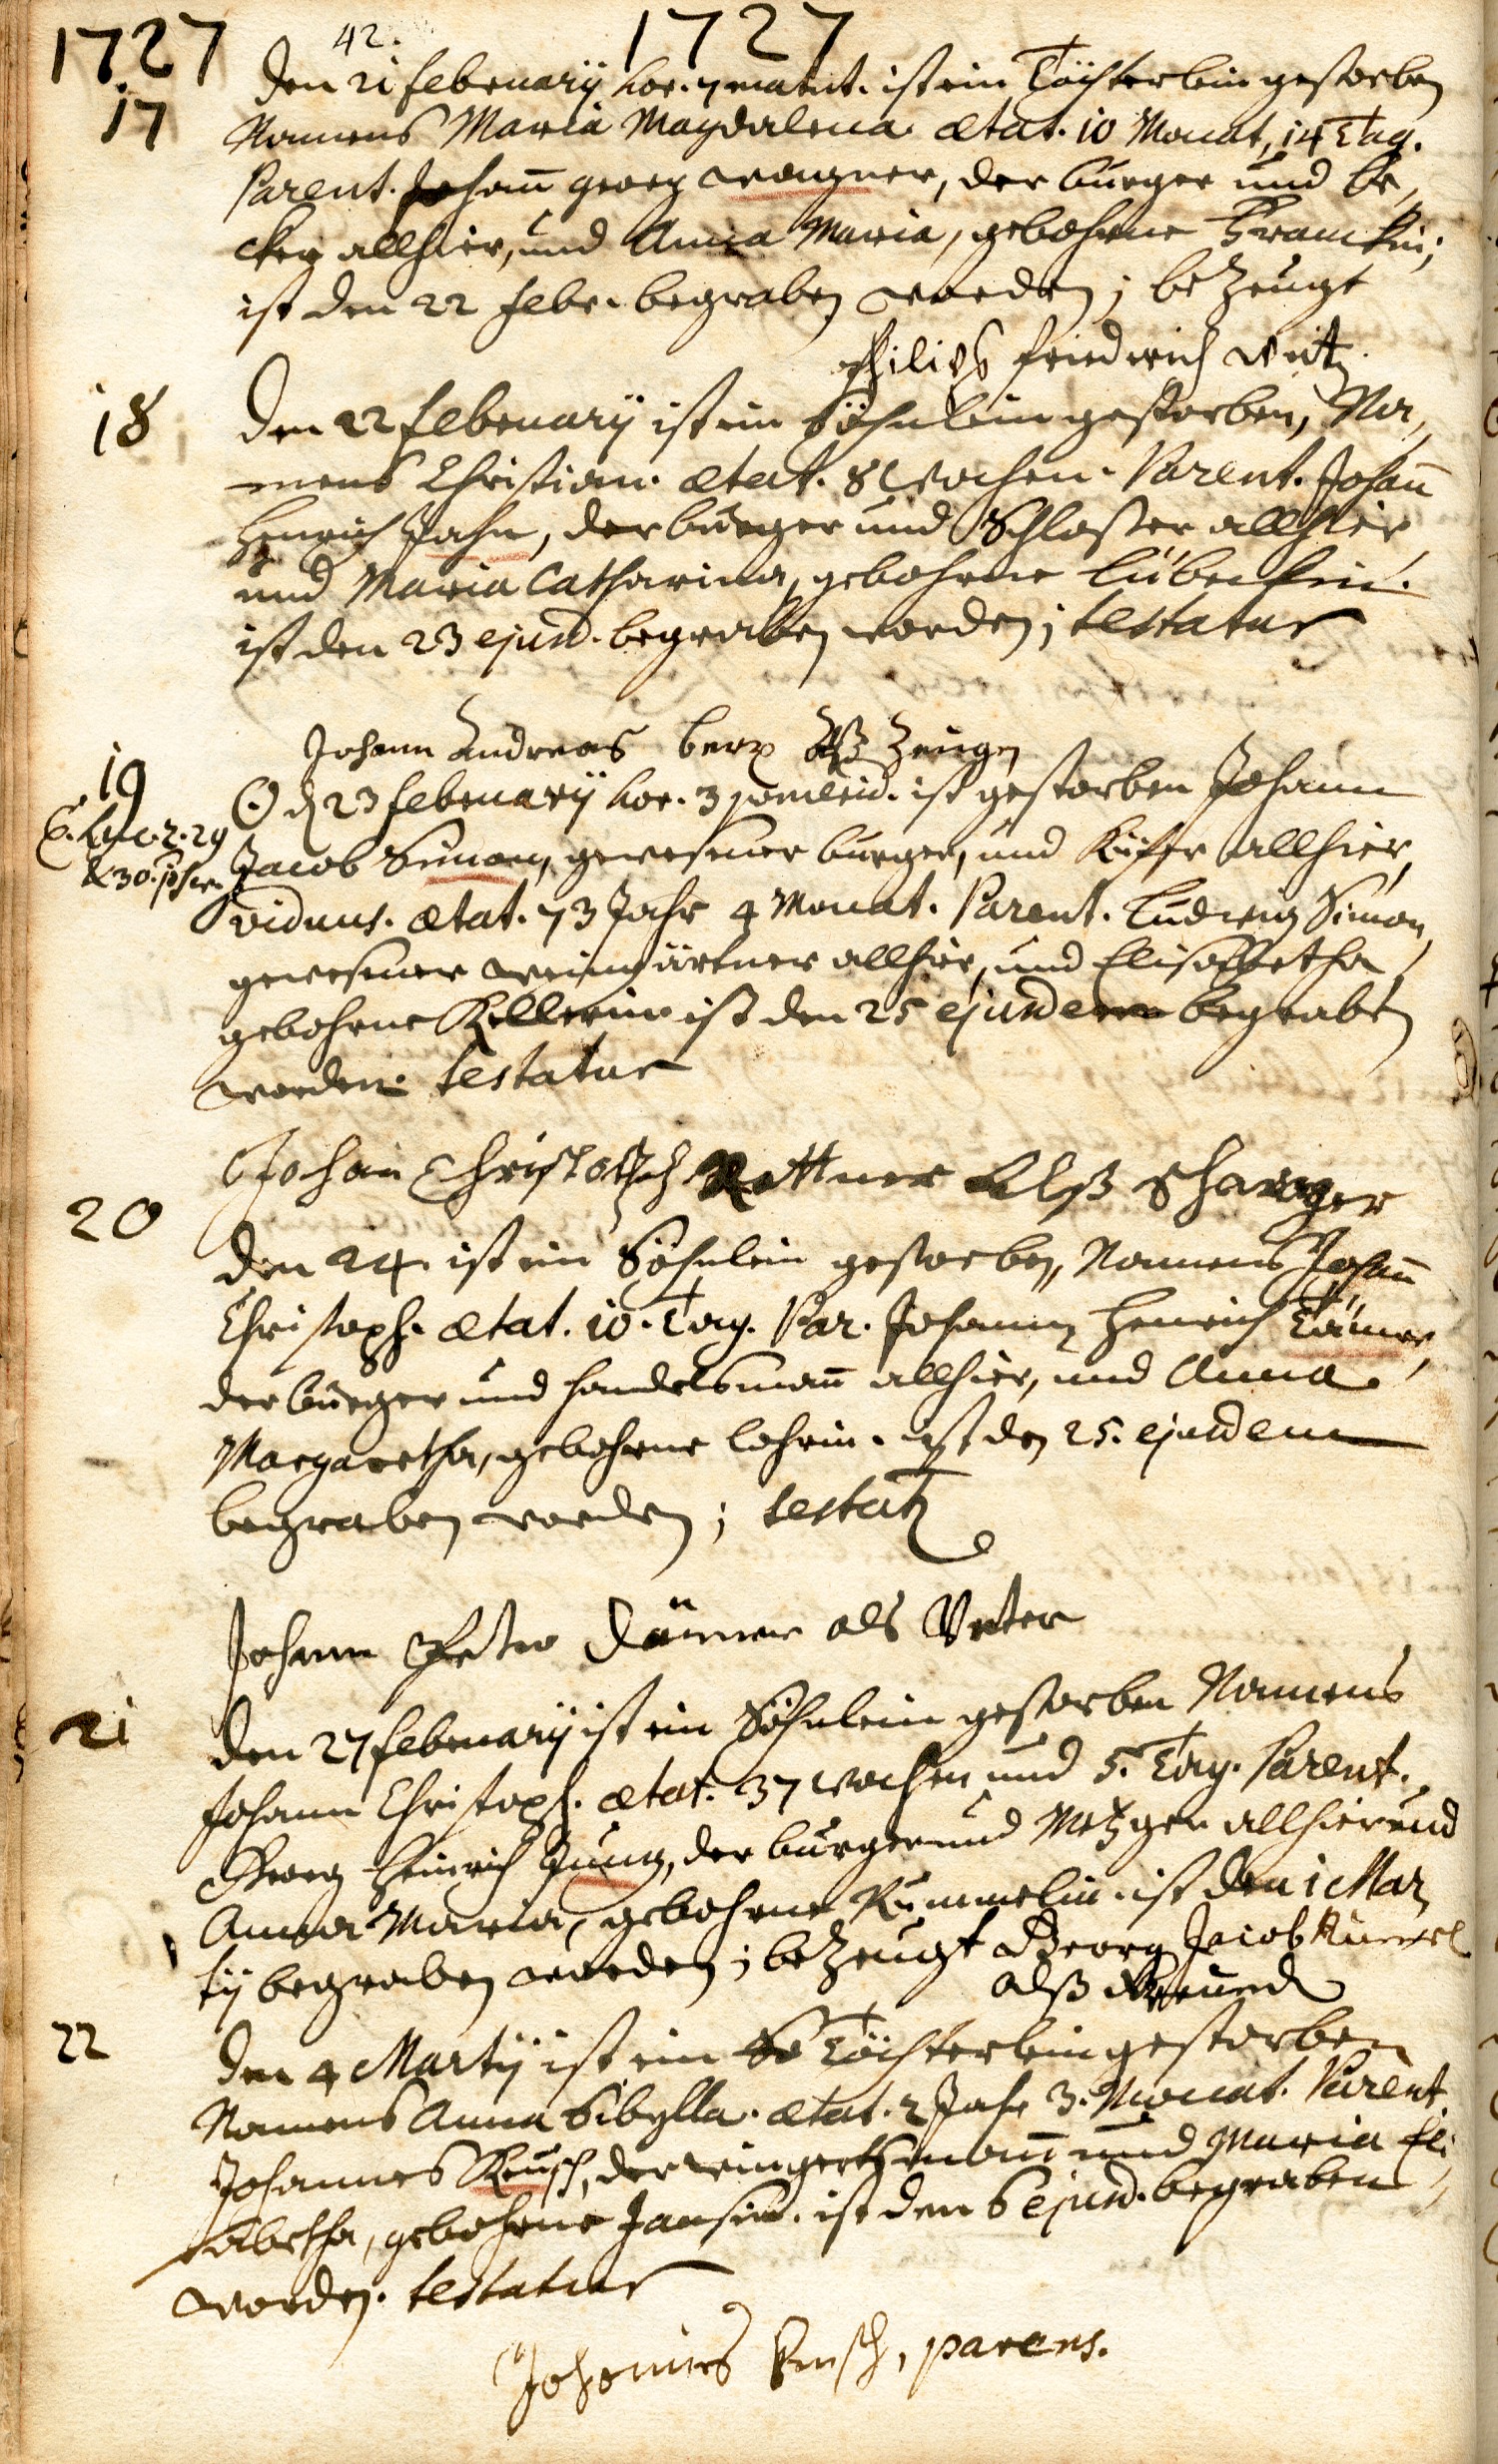 1727 42. 1727
den 21 februarij hor. 7 matut. ist ein Töchterlein gestorben
17 Namens Maria Magdalena ætat. 10 Monat, 14 Tag.
Parent. Johañ georg wagner, der burger und be,
cker allhier, und Anna Maria, gebohrne Franckin;
ist den 22 febr. begraben worden; bezeugt
Philips friedrich
18 den 22 februarij ist ein Söhnlein gestorben, Na,
mens Christian. ætat. 8 Wochen. Parent. Johañ
Henrich Jahn, der burger und Schlosser allhier
und Maria Catharina, gebohrne Lübeckin.
ist den 23 ejusd. begraben worden; testatur
Johann Andreas berg alß Zeuge
19 ☉ d 23 februarij hor. 3 pomerid. ist gestorben Johann
Jacob Simon, gewesener burger, und Küffer allhier,
E. Luc. 2. 29
& 30.
viduus. ætat. 73 Jahr 4 Monat. Parent. Ludwig Simon,
gewesener weingärtner allhier, und Elisabetha
gebohrne Kellerin ist den 25 ejusdem begraben
worden. testatur
Johan Christoph Rettner Alß Schwager
20 den 24. ist ein Söhnlein gestorben, Namens Johañ
Christoph. ætat. 10. Tag. Par. Johann Henrich Dämer,
der burger und handelsmañ allhier, und Anna
Margaretha, gebohrne Lehrin. ist den 25. ejusdem
begraben worden; testat
Johann Peter Dämer als Vetter
21 den 27 februarij ist ein Söhnlein gestorben Namens
Johann Christoph. ætat. 37 wochen und 5. Tag. Parent.
Georg Heinrich Jung, der burger und Metzger allhier und
Anna Maria, gebohrne Kümmelin. ist den 1 Mar,
tij begraben worden; bezeugt Georg Jacob Kümel
alß Freund
22 den 4 Martij ist ein Töchterlein gestorben
Namens Anna Sibylla. ætat. 2 Jahr 3. Monat. Parent.
Johannes Reusch, der weingertsmañ und Maria Eli,
sabetha, gebohrne Jansin. ist den 6 ejusd. begraben
worden. testatur
Johannes Reusch, parens.